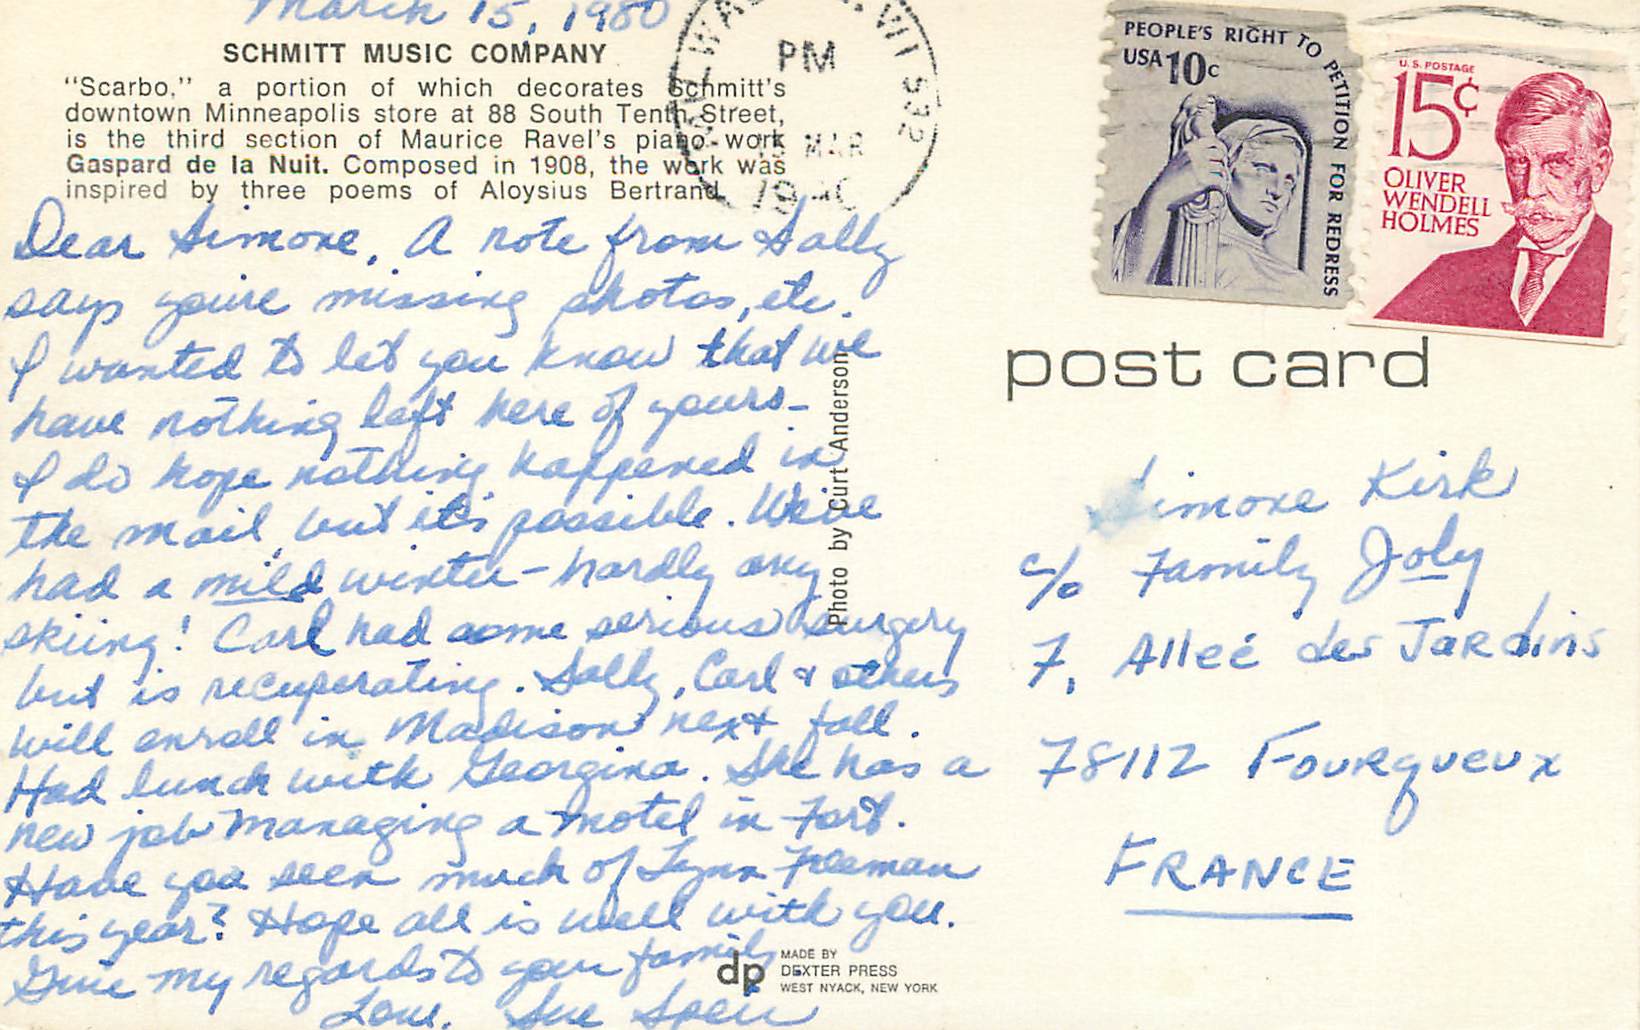 March 15, 1980
SCHMITT MUSIC COMPANY
"Scarbo," a portion of which decorates Schmitt's
downtown Minneapolis store at 88 South Tenth Street,
is the third section of Maurice Ravel's piano work
Gaspard de la Nuit. Composed in 1908, the work was
inspired by three poems of Aloysius Bertrand.
Dear Simone, A note from Sally
says you're missing photos, etc.
I wanted to let you know that we
have nothing left here of yours-
I do hope nothing happened in
the mail, but it's possible. We've
had a mild winter - hardly any
skiing! Carl had some serious surgery
but is recuperating. Sally, Carl & others
will enroll in Madison next fall.
Had lunch with Georgina. She has a
new job managing a motel in Fort.
Have you seen much of Lynn Freeman
this year? Hope all is well with you.
Give my regards to your family
Love, Sue
Photo by Curt Anderson
MADE BY
dp DEXTER PRESS
WEST NYACK, NEW YORK
WI 532
PM
MAR
PEOPLE'S RIGHT TO PETITION FOR REDRESS
USA 10c
U.S. POSTAGE
15¢
OLIVER
WENDELL
HOLMES
post card
Simone Kirk
c/o Family Joly
7, Alleé des Jardins
78112 Fourqueux
FRANCE